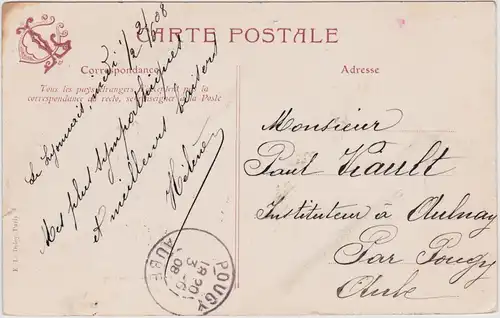 CARTE POSTALE
Correspondance
Tous les pays étrangers n'acceptent pas la
correspondance au recto, se renseigner à la Poste
Adresse
Le Lyonnais, midi 1/2 2/6 08
Mes plus sympathiques
et meilleurs baisers
Hélène
Monsieur
Paul Viault
Instituteur à Aulnay
Par Pougy
Aube
POUGY
18 20
3 -6
08
AUBE